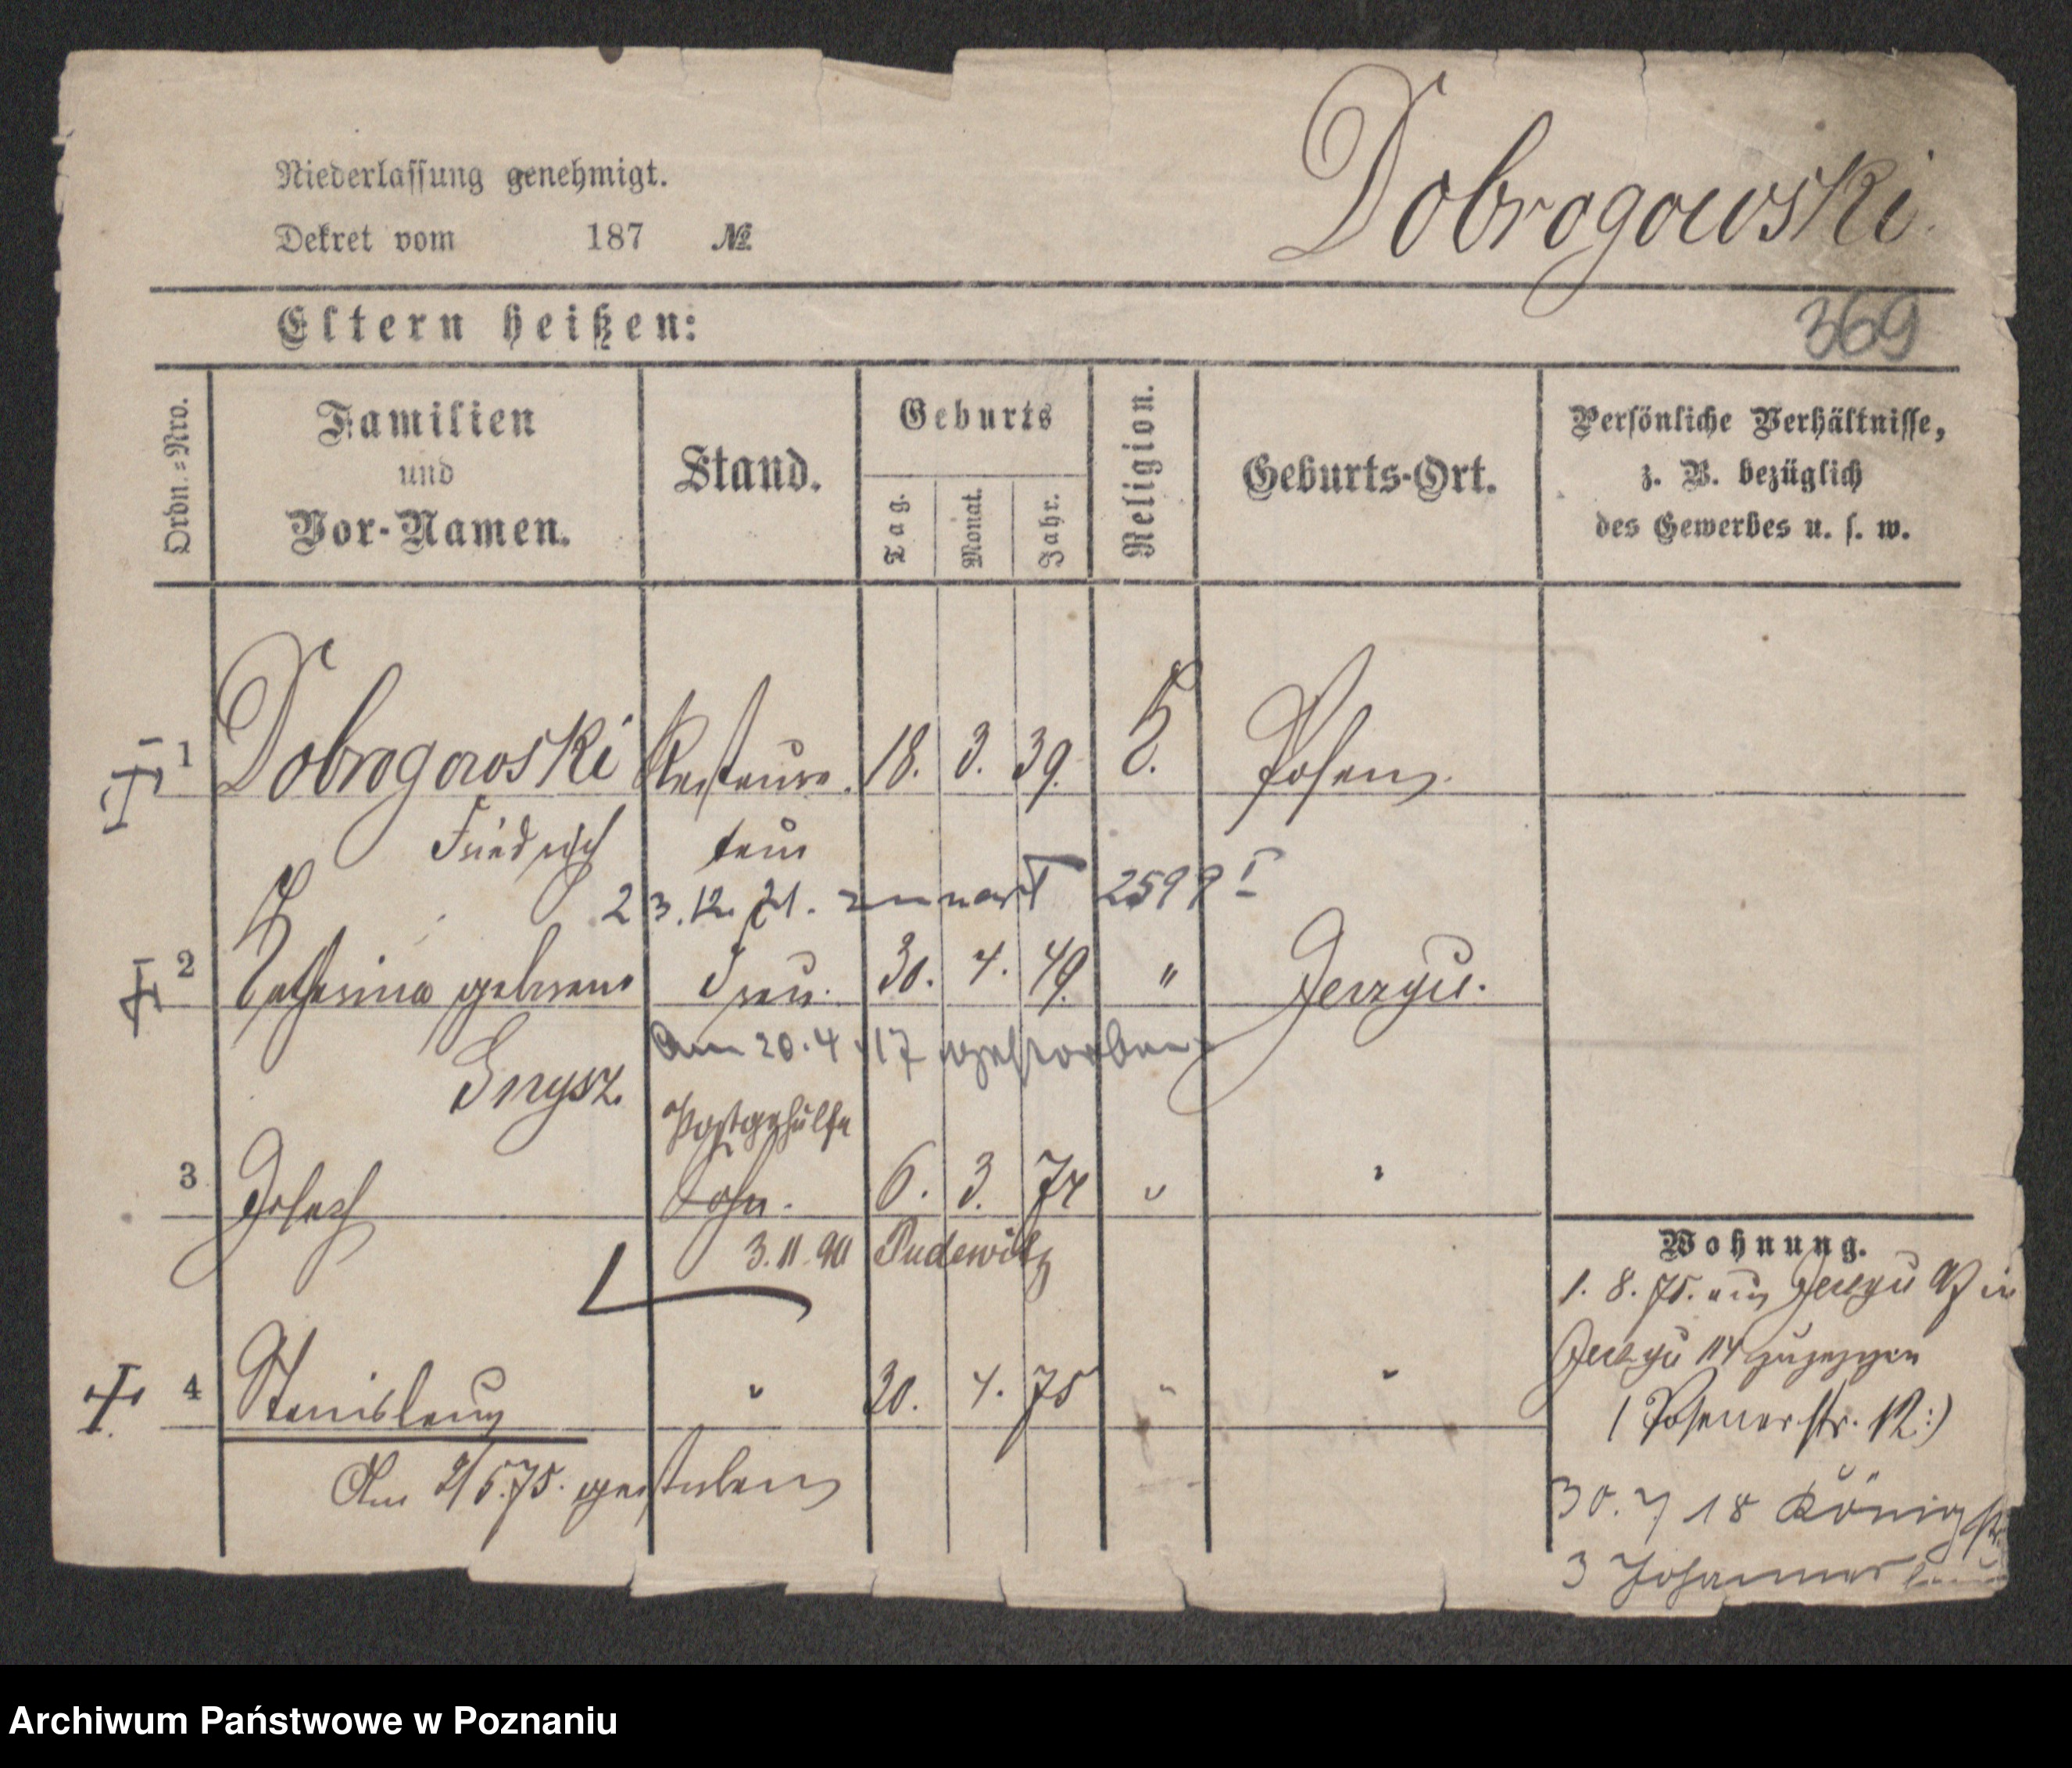 Niederlassung genehmigt.
Dekret vom 187 №
Dobrogowski.
369
Eltern heißen:
Ordn.=Nro.
Familien
und
Vor-Namen.
Stand.
Geburts
Tag.
Monat.
Jahr.
Religion.
Geburts-Ort.
Persönliche Verhältnisse,
z. B. bezüglich
des Gewerbes u. s. w.
1 Dobrogowski Restaura. 18. 3. 39. Posen.
Friedrich teur
23.12.21. 2599 I
2 Catharina geborene Frau. 30. 4. 49. " Jerzyce.
Gnysz. Am 20.4.17 gestorben
Postgehülfe
3 Sohn. 6. 3. 74 "
3.11.90 Pudewitz
4 Stanislaus " 30. 4. 75 " "
Am 2/5.75. gestorben
Wohnung.
1. 8. 75. aus in
114 zugezogen
(Posenerstr. 12:)
30. 7 18 Königstr.
3
Archiwum Państwowe w Poznaniu